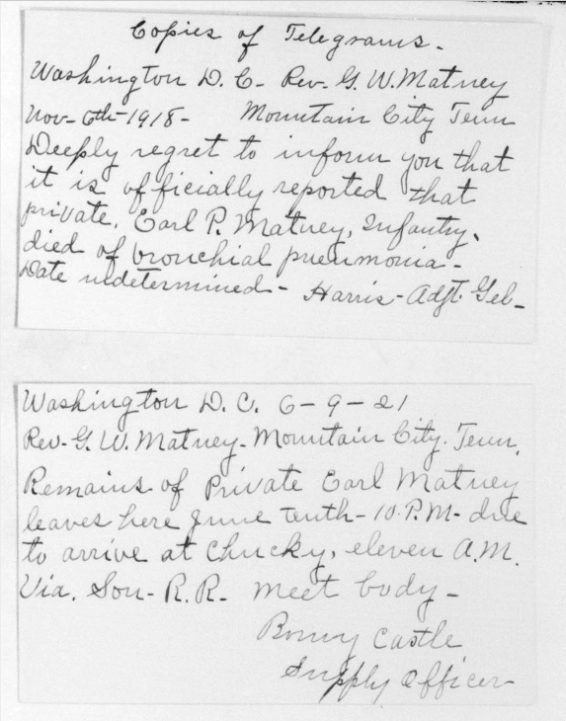 Copies of Telegrams.
Washington D. C. Rev. G. W. Matney
Nov- 6th-1918- Mountain City Tenn
Deeply regret to inform you that
it is officially reported that
private, Earl P. Matney, Infantry,
died of bronchial pneumonia-
Date undetermined- Harris- Adjt. Gel-
Washington D. C. 6-9-21
Rev- G. W. Matney- Mountain City. Tenn.
Remains of Private Earl Matney
leaves here June tenth- 10 P.M- due
to arrive at Chucky, eleven A.M.
Via. Sou- R.R. meet body-
Castle
Supply Officer